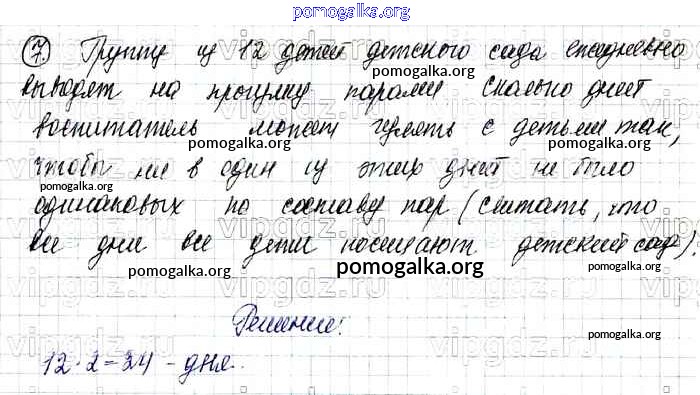 pomogalka.org
7. Группу из 12 детей детского сада ежедневно
pomogalka.org
выводят на прогулку парами сколько дней
pomogalka.org
воспитатель может гулять с детьми так,
pomogalka.org pomogalka.org
чтобы ни в один из этих дней не было
pomogalka.org
одинаковых по составу пар (считать, что
pomogalka.org
все дни все дети посещают детский сад)?
pomogalka.org pomogalka.org pomogalka.org
vipgdz.ru
Решение:
pomogalka.org
12·2=24 - дня.